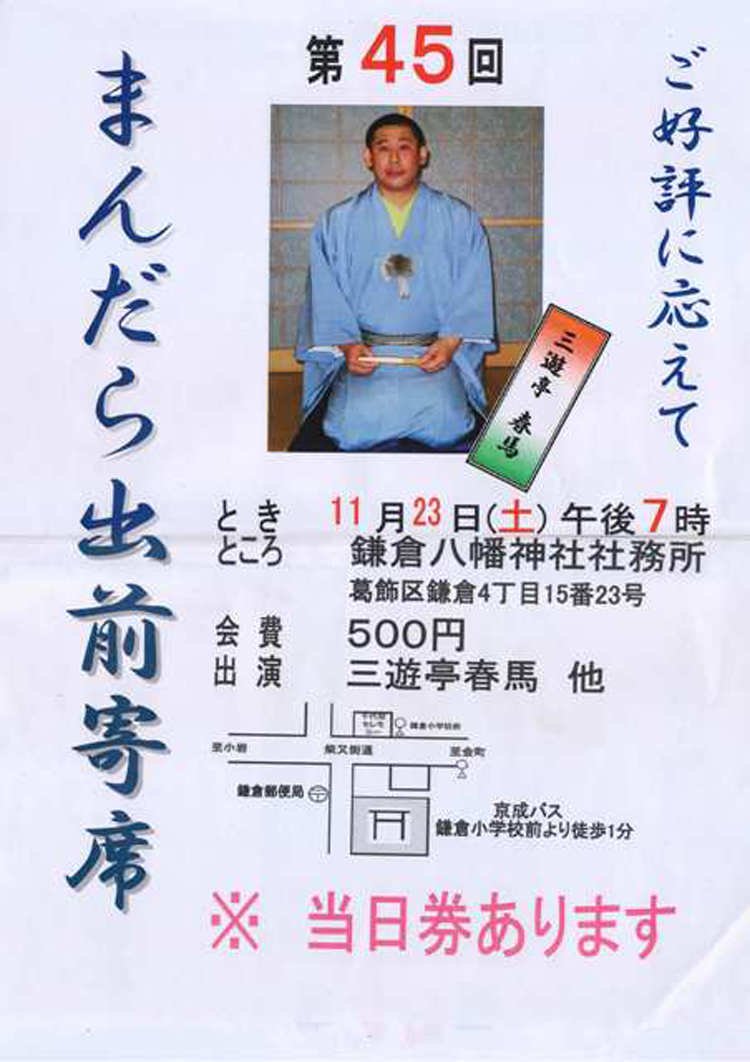 第45回
ご好評に応えて
まんだら出前寄席
三遊亭 春馬
とき 11月23日(土)午後7時
ところ 鎌倉八幡神社社務所
葛飾区鎌倉4丁目15番23号
会費 500円
出演 三遊亭春馬 他
鎌倉小学校前
至小岩 柴又街道 至金町
鎌倉郵便局
京成バス
鎌倉小学校前より徒歩1分
※ 当日券あります